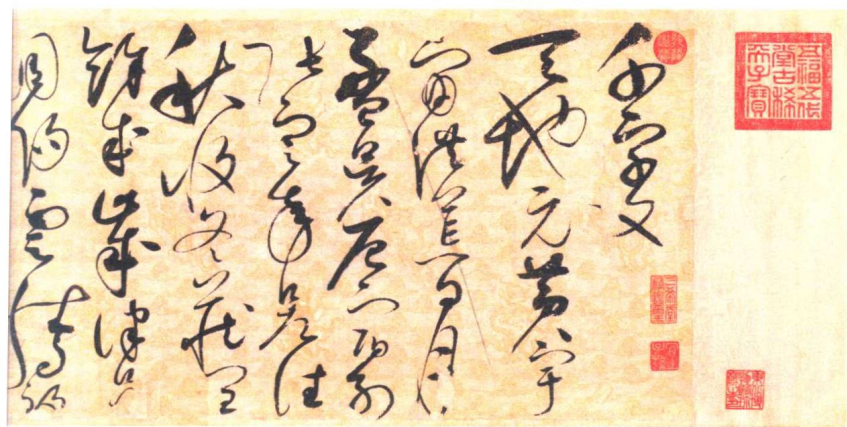 五福五代
堂古稀
天子寶
千字文
天地元黃宇
宙洪荒日月
盈昃辰宿列
張寒來暑往
秋收冬藏閏
餘成歲律呂
調陽雲騰致